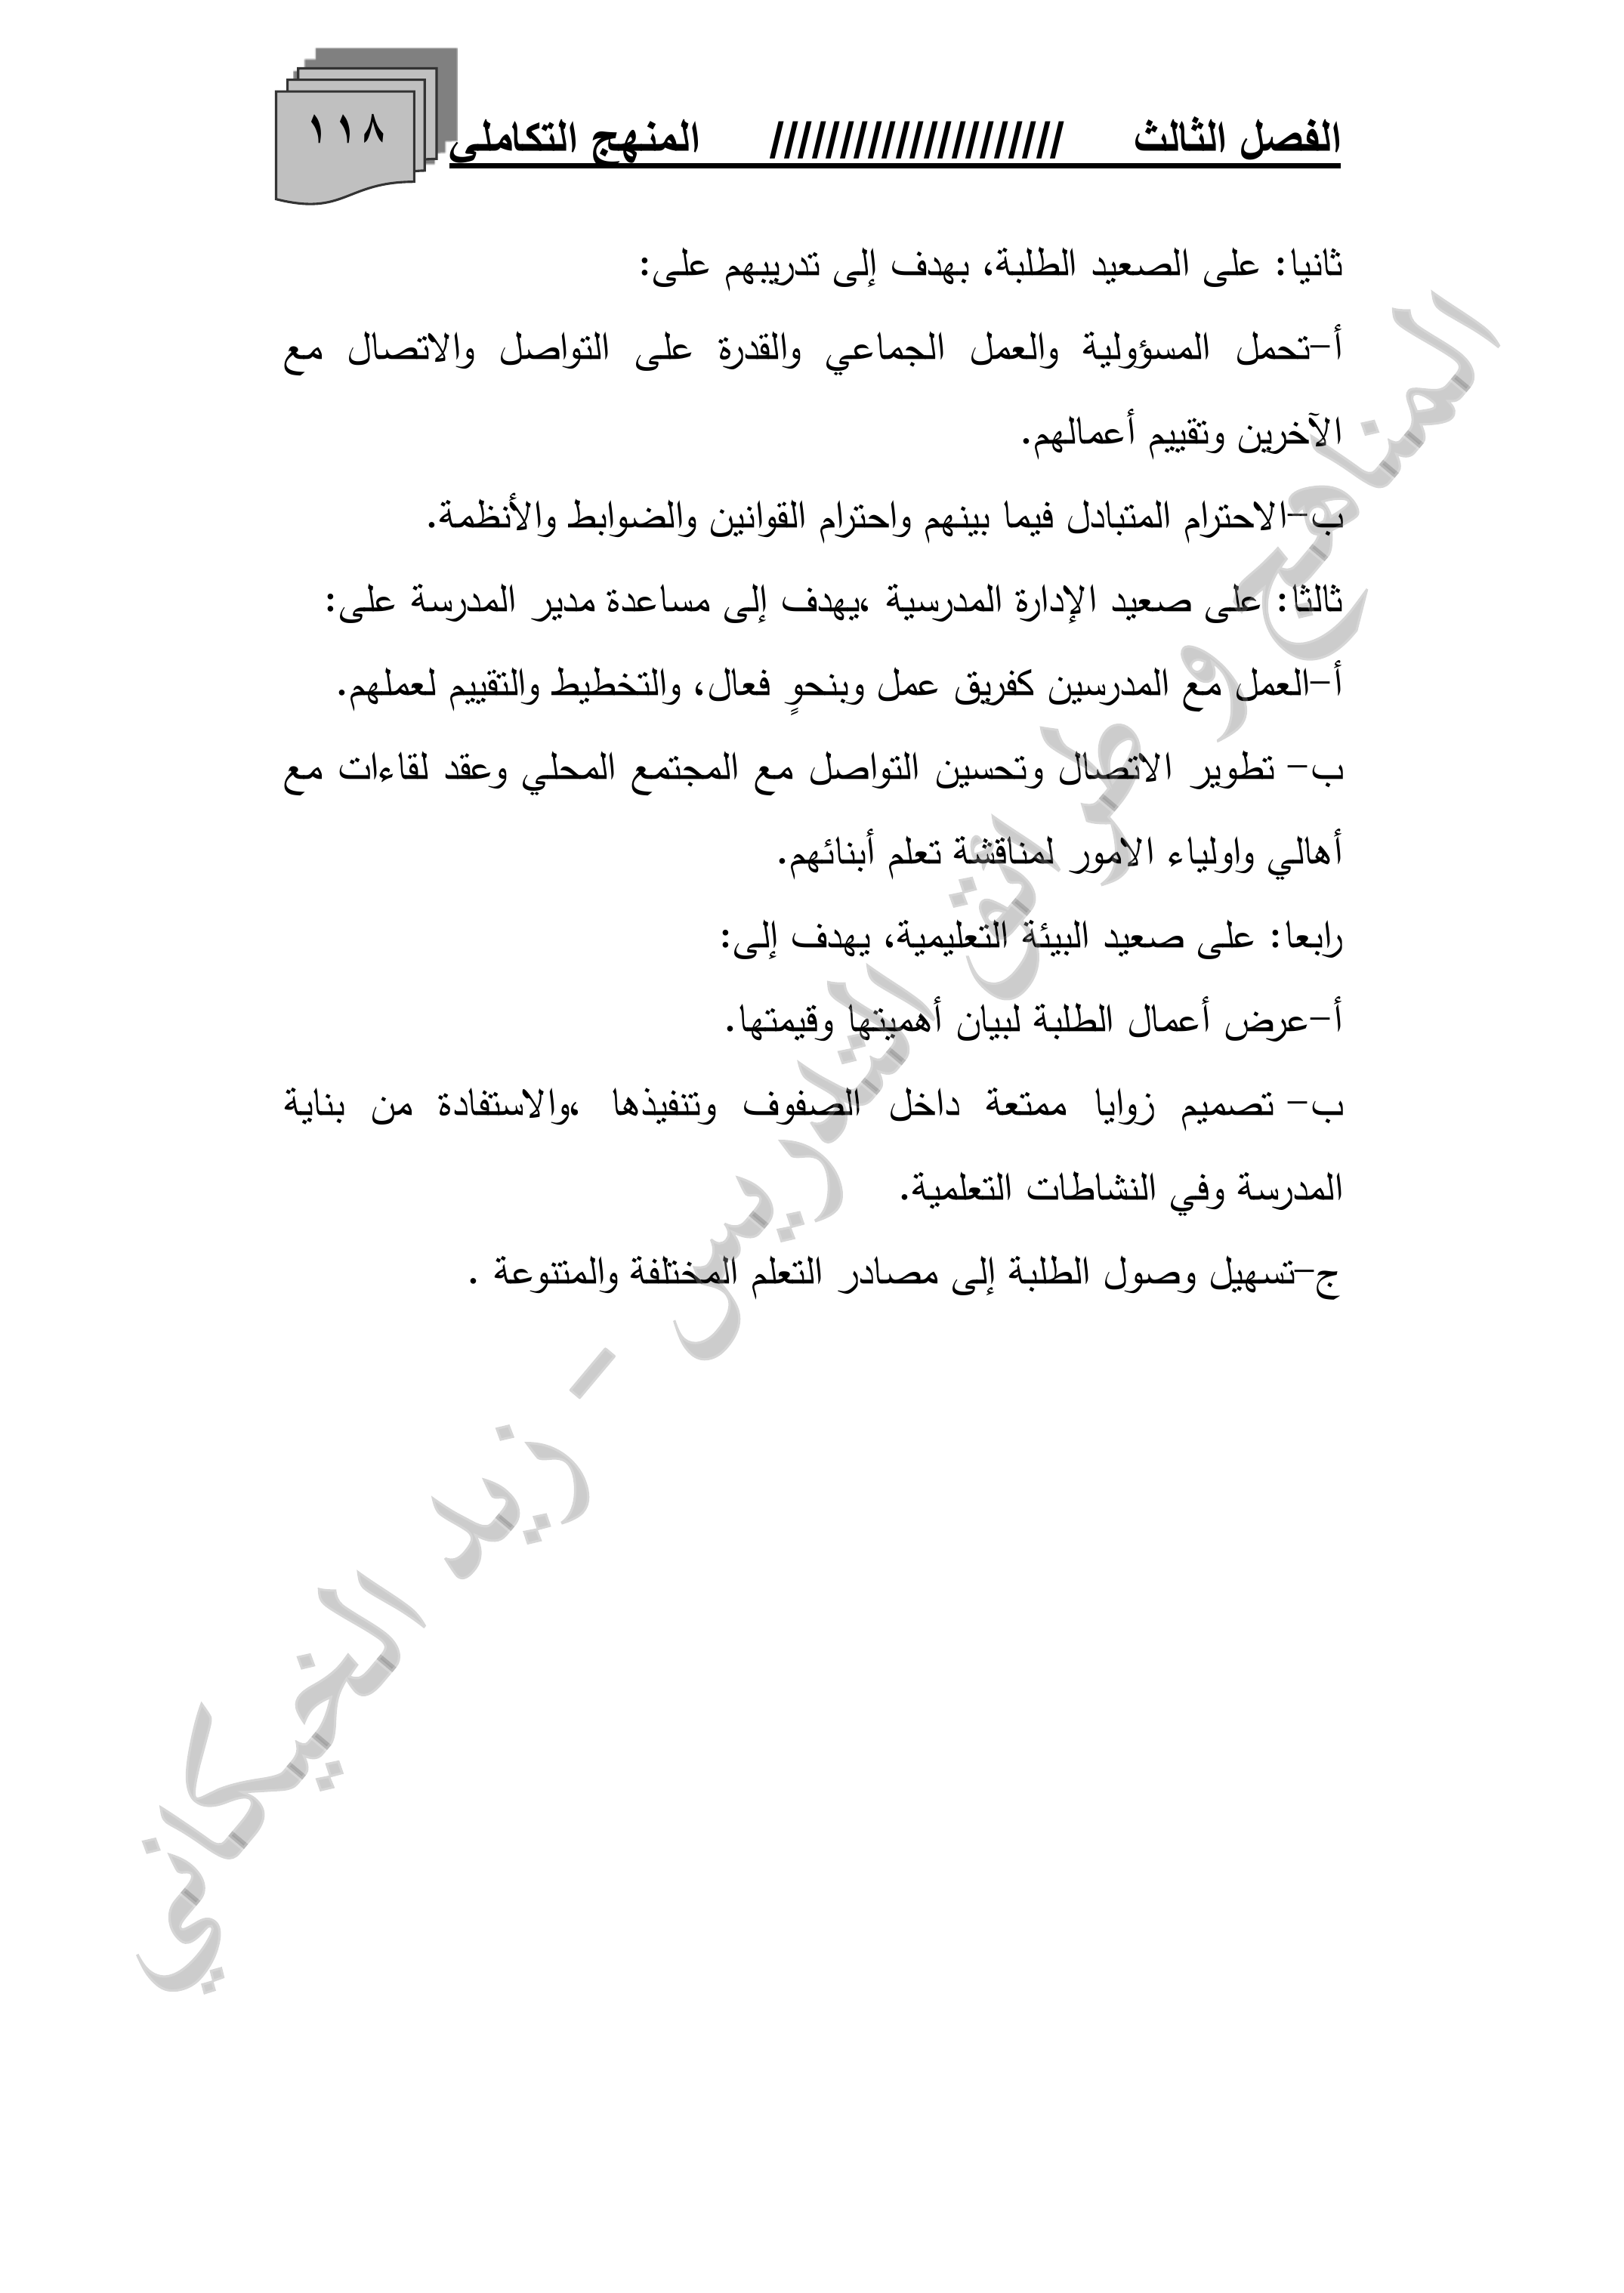 الفصل الثالث ///////////////////// المنهج التكاملي ١١٨
ثانيا: على الصعيد الطلبة، بهدف إلى تدريبهم على:
أ-تحمل المسؤولية والعمل الجماعي والقدرة على التواصل والاتصال مع
الآخرين وتقييم أعمالهم.
ب-الاحترام المتبادل فيما بينهم واحترام القوانين والضوابط والأنظمة.
ثالثا: على صعيد الإدارة المدرسية ،يهدف إلى مساعدة مدير المدرسة على:
أ-العمل مع المدرسين كفريق عمل وبنحوٍ فعال، والتخطيط والتقييم لعملهم.
ب- تطوير الاتصال وتحسين التواصل مع المجتمع المحلي وعقد لقاءات مع
أهالي واولياء الامور لمناقشة تعلم أبنائهم.
رابعا: على صعيد البيئة التعليمية، يهدف إلى:
أ-عرض أعمال الطلبة لبيان أهميتها وقيمتها.
ب- تصميم زوايا ممتعة داخل الصفوف وتنفيذها ،والاستفادة من بناية
المدرسة وفي النشاطات التعلمية.
ج-تسهيل وصول الطلبة إلى مصادر التعلم المختلفة والمتنوعة .
المناهج و طرائق التدريس - زيد الخيكاني